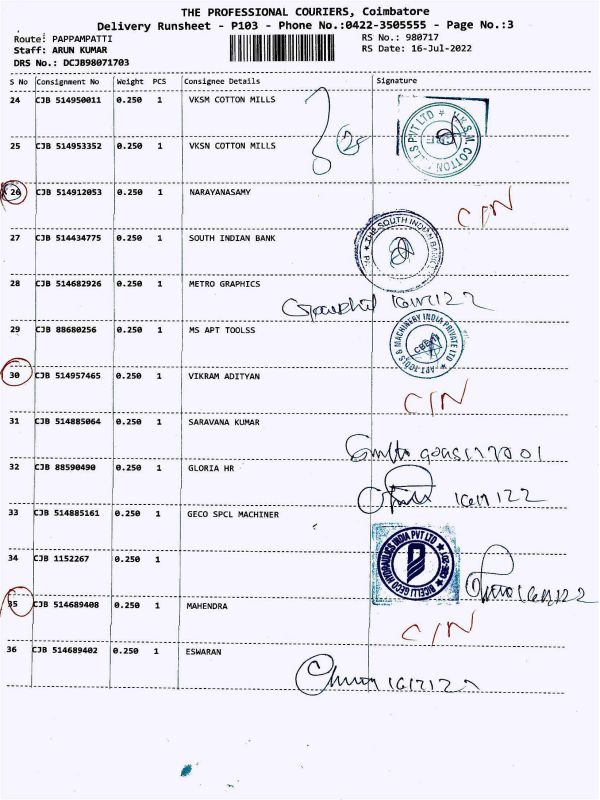 THE PROFESSIONAL COURIERS, Coimbatore
Delivery Runsheet - P103 - Phone No.:0422-3505555 - Page No.:3
Route: PAPPAMPATTI RS No.: 980717
Staff: ARUN KUMAR RS Date: 16-Jul-2022
DRS No.: DCJB98071703
S No Consignment No Weight PCS Consignee Details Signature
24 CJB 514950011 0.250 1 VKSM COTTON MILLS
25 CJB 514953352 0.250 1 VKSN COTTON MILLS
26 CJB 514912053 0.250 1 NARAYANASAMY C/N
27 CJB 514434775 0.250 1 SOUTH INDIAN BANK THE SOUTH INDIAN BANK
28 CJB 514682926 0.250 1 METRO GRAPHICS 16/7/22
29 CJB 88680256 0.250 1 MS APT TOOLSS APT TOOLS & MACHINERY INDIA PRIVATE LTD
30 CJB 514957465 0.250 1 VIKRAM ADITYAN C/N
31 CJB 514885064 0.250 1 SARAVANA KUMAR
32 CJB 88590490 0.250 1 GLORIA HR 16/7/22
33 CJB 514885161 0.250 1 GECO SPCL MACHINER
34 CJB 1152267 0.250 1 GECO HYDRAULICS INDIA PVT LTD 16/7/22
35 CJB 514689408 0.250 1 MAHENDRA C/N
36 CJB 514689402 0.250 1 ESWARAN 16/7/22